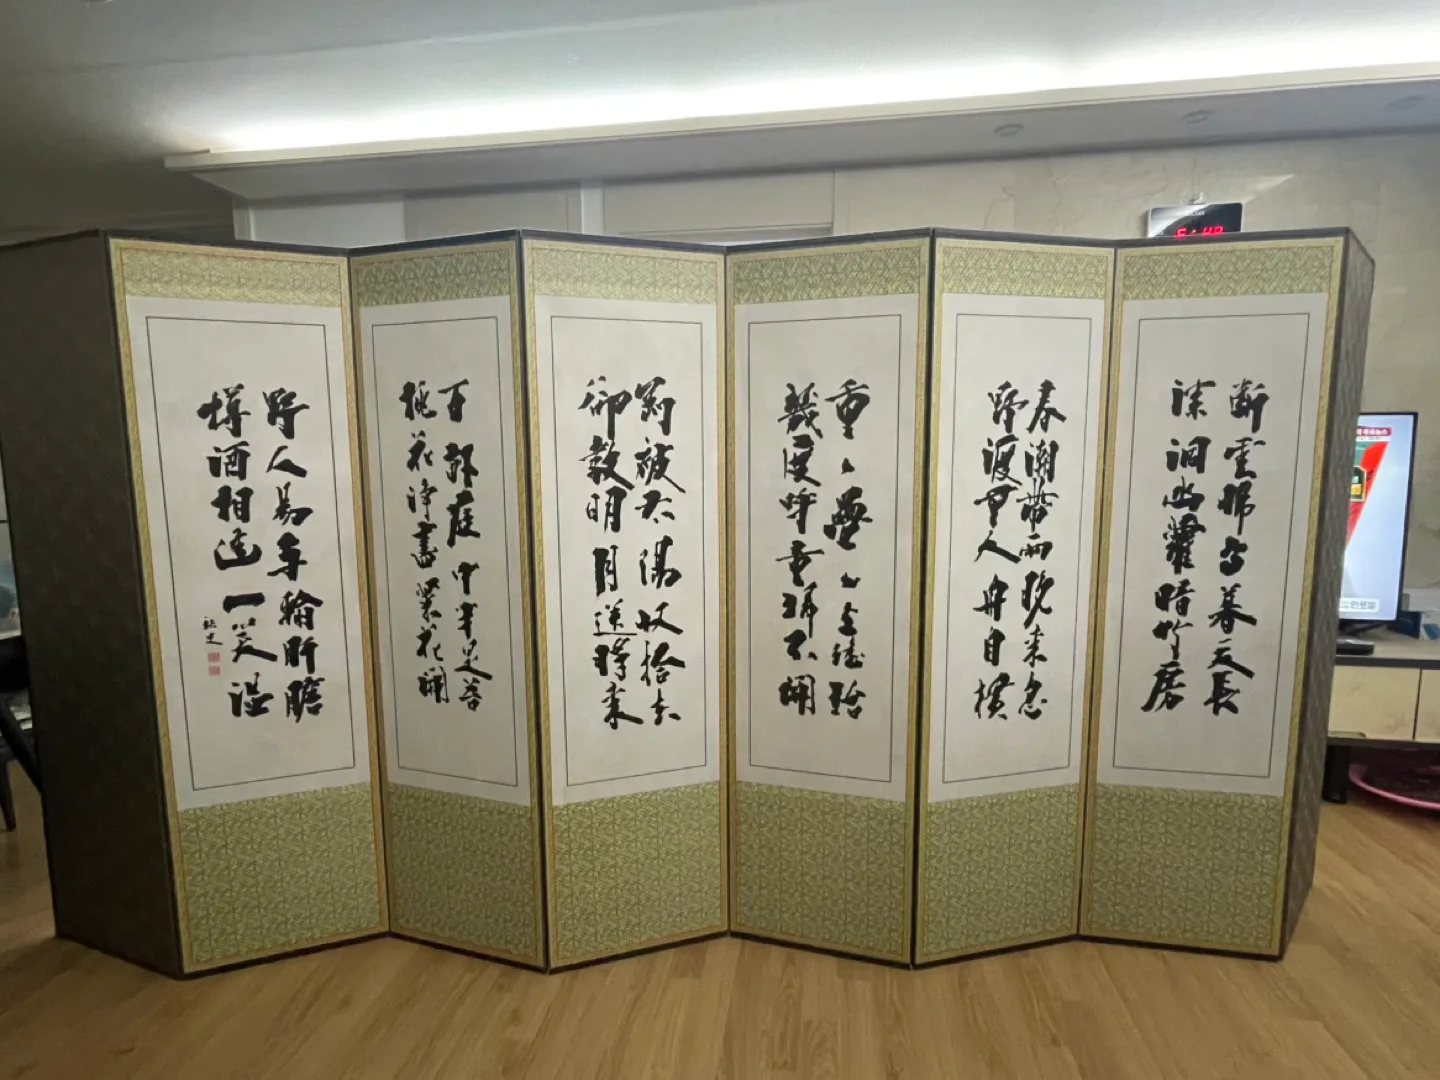 断雲歸鳥暮天長
深洞幽蘿暗竹房
春潮帶雨晚来急
野渡無人舟自橫
重々疊々上瑤臺
幾度呼童掃不開
剛被太陽收拾去
却敎明月送將来
百畝庭中半是苔
桃花淨盡菜花開
野人易與輸肝膽
樽酒相逢一笑溫